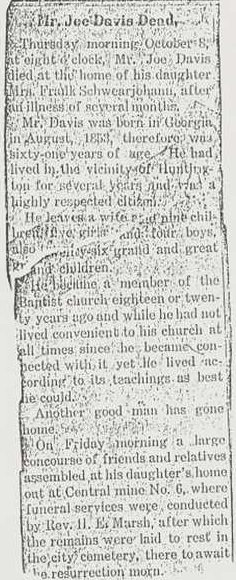 Mr. Joe Davis Dead.
Thursday morning, October 8,
at eight o'clock, Mr. Joe Davis
died at the home of his daughter
Mrs. Frank Schwearjohann, after
an illness of several months.
Mr. Davis was born in Georgia
in August, 1853, therefore was
sixty-one years of age. He had
lived in the vicinity of Hunting-
ton for several years and was a
highly respected citizen.
He leaves a wife and nine chil-
dren, five girls and four boys,
also twenty-six grand and great
grand children.
He became a member of the
Baptist church eighteen or twen-
ty years ago and while he had not
lived convenient to his church at
all times since he became con-
nected with it yet he lived ac-
cording to its teachings as best
he could.
Another good man has gone
home.
On Friday morning a large
concourse of friends and relatives
assembled at his daughter's home
out at Central mine No. 6, where
funeral services were conducted
by Rev. H. E. Marsh, after which
the remains were laid to rest in
the city cemetery, there to await
the resurrection morn.